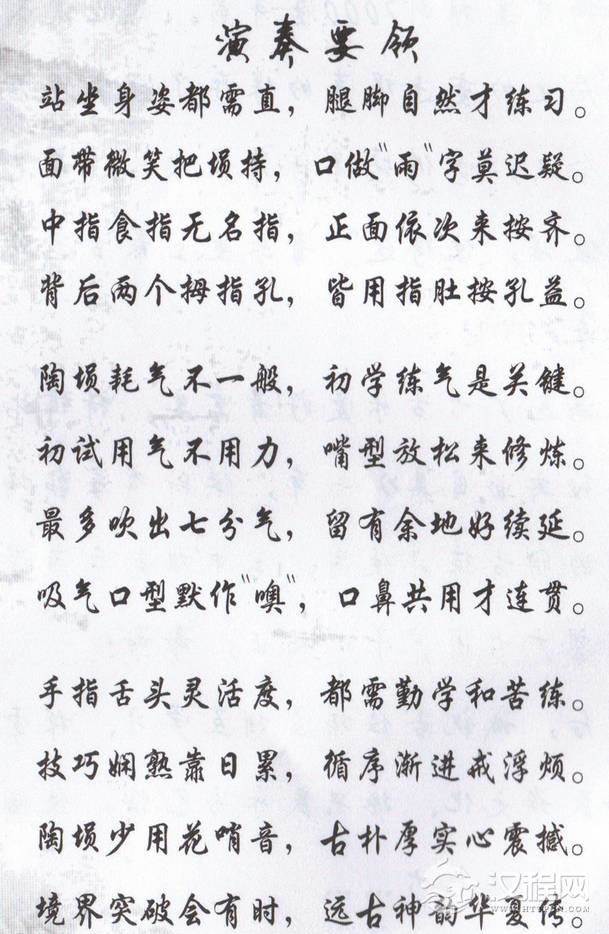 演奏要领
站坐身姿都需直，腿脚自然才练习。
面带微笑把埙持，口做"雨"字莫迟疑。
中指食指无名指，正面依次来按齐。
背后两个拇指孔，皆用指肚按孔益。
陶埙耗气不一般，初学练气是关键。
初试用气不用力，嘴型放松来修炼。
最多吹出七分气，留有余地好续延。
吸气口型默作"噢"，口鼻共用才连贯。
手指舌头灵活度，都需勤学和苦练。
技巧娴熟靠日累，循序渐进戒浮烦。
陶埙少用花哨音，古朴厚实心震撼。
境界突破会有时，远古神韵华夏传。
汉程网
WWW.HTTPCN.COM